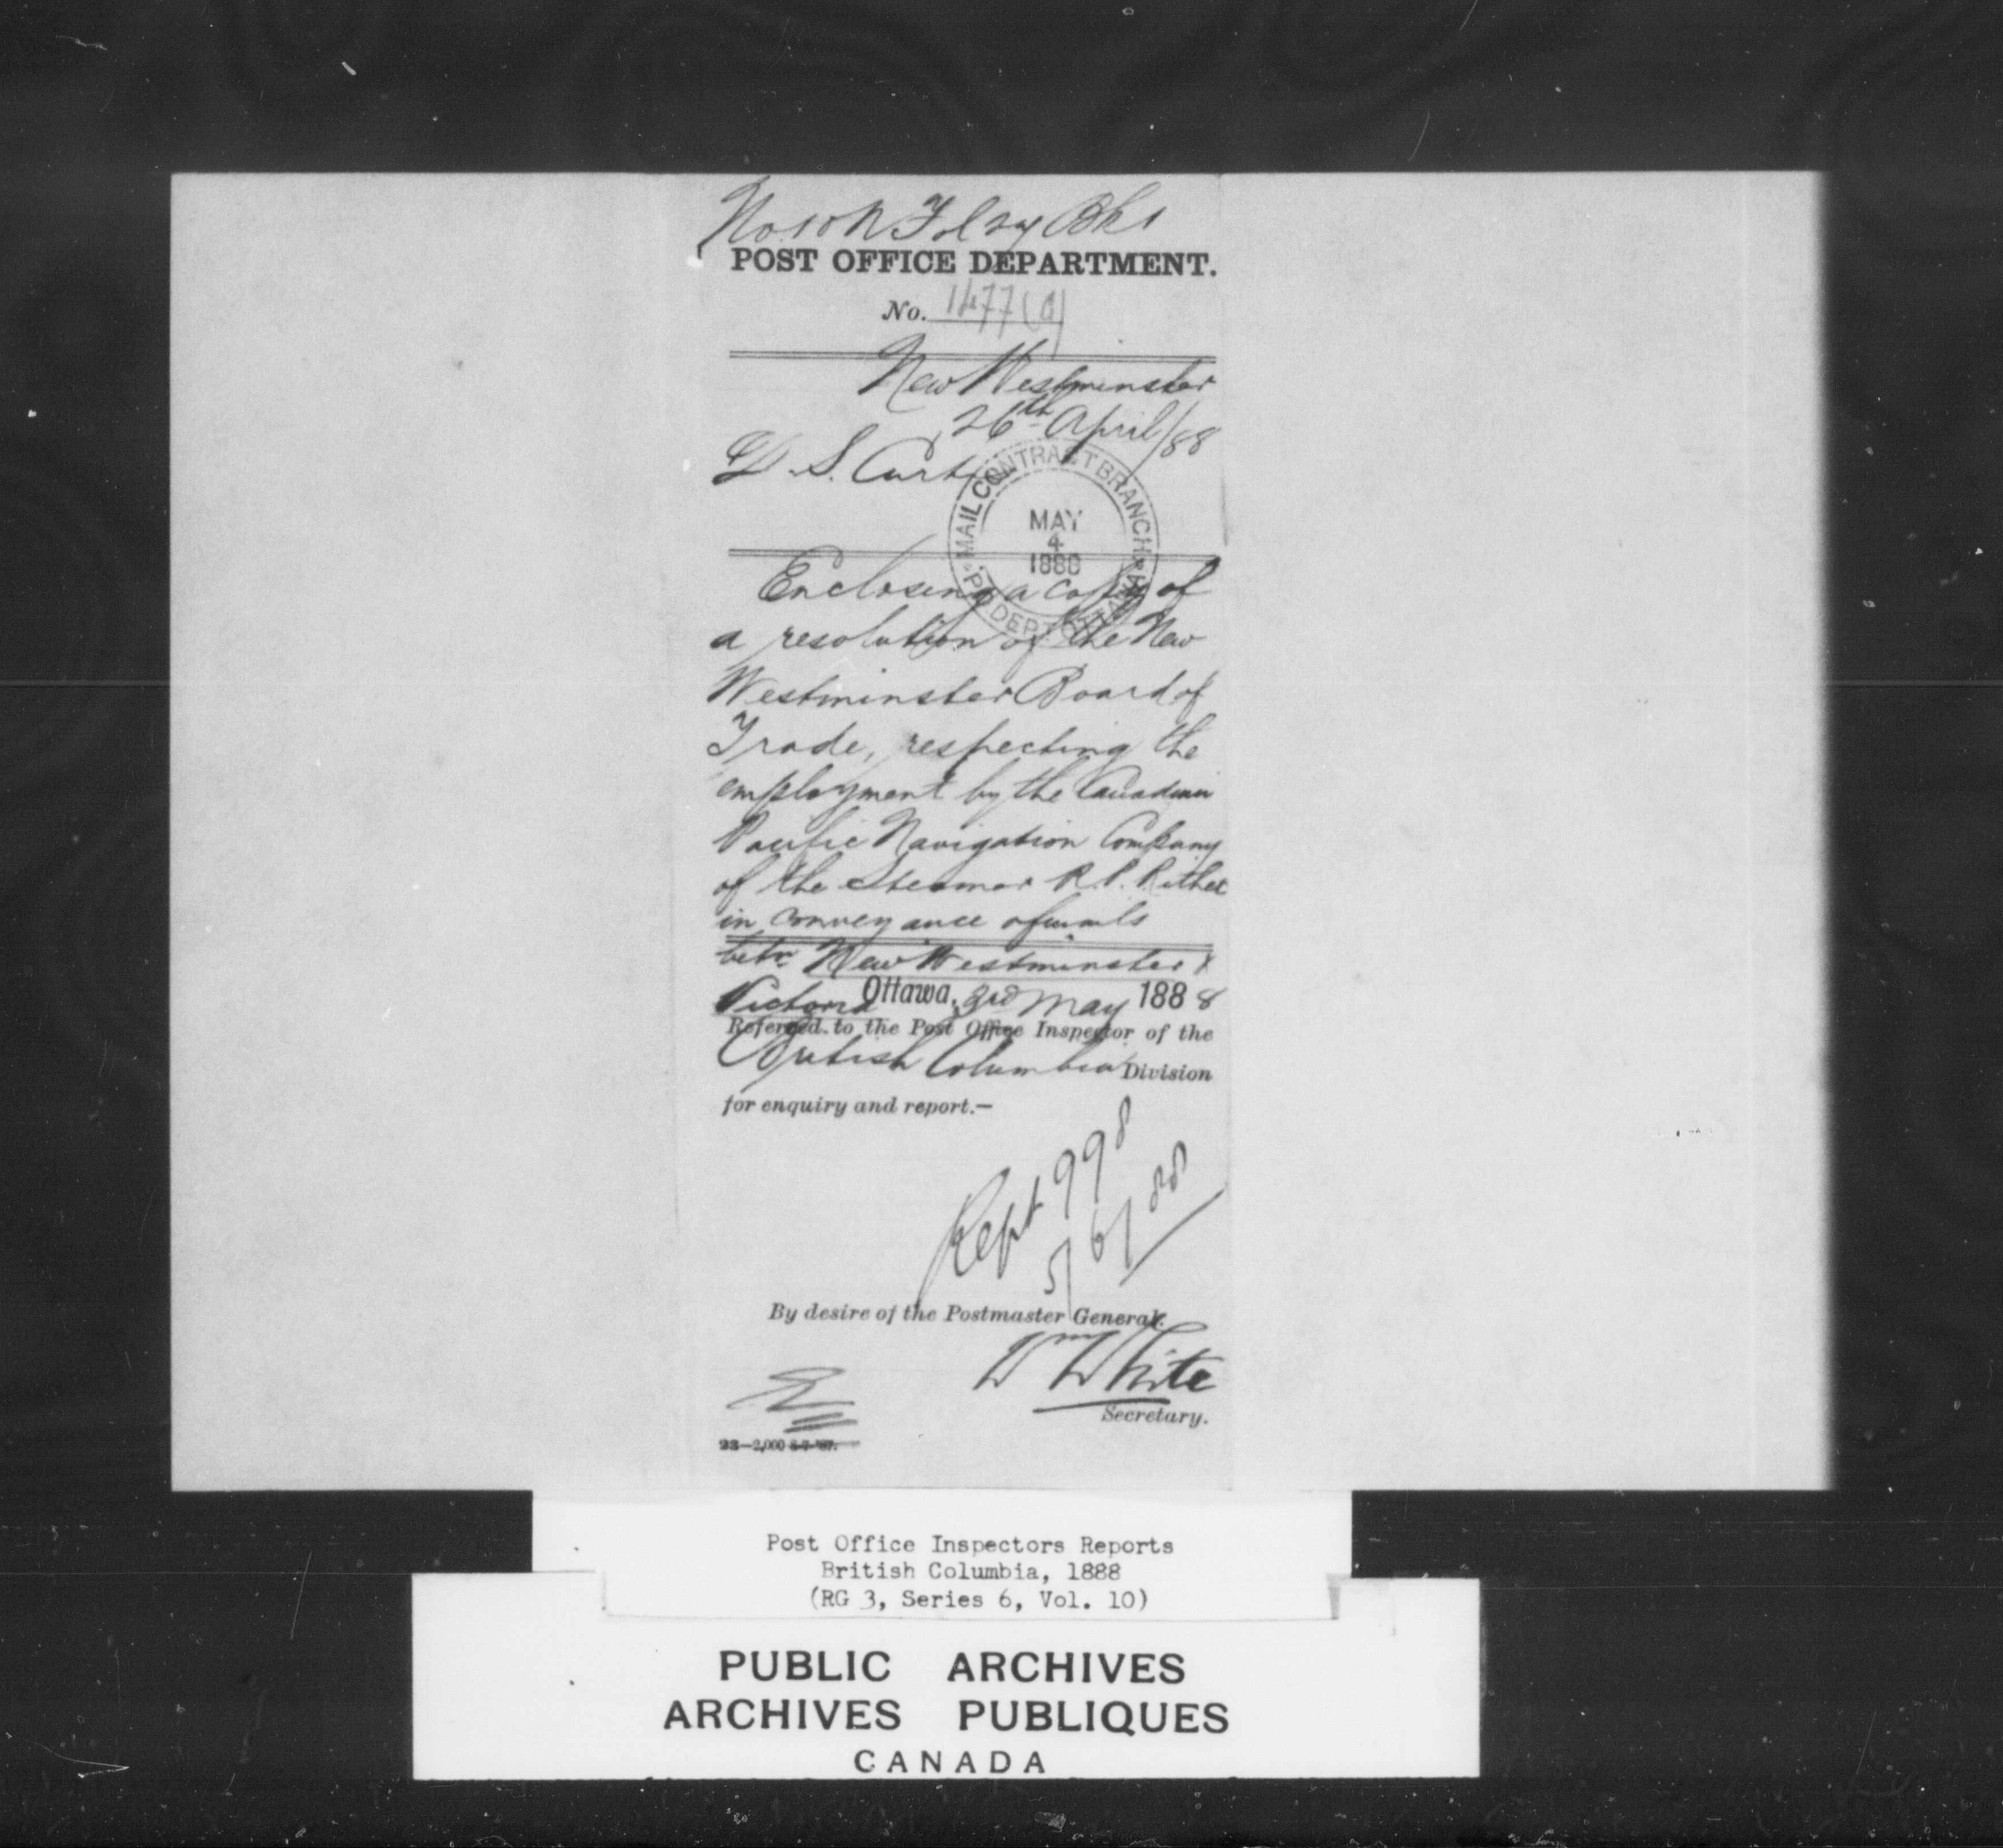 No 10 N Fol 24 Bk 1
POST OFFICE DEPARTMENT.
No. 1477(a)
New Westminster
26th April/88
D. S. Curtis
MAIL CONTRACT BRANCH
MAY
4
1888
P.O. DEPT. OTTAWA
Enclosing a copy of
a resolution of the New
Westminster Board of
Trade, respecting the
employment by the Canadian
Pacific Navigation Company
of the Steamer R. P. Rithet
in conveyance of mails
betn New Westminster &
Victoria
Ottawa, 3rd May 1888
Referred to the Post Office Inspector of the
British Columbia Division
for enquiry and report.—
Rept 998
5/6/88
By desire of the Postmaster General.
Wm White
Secretary.
23—2,000 8-7-'87.
Post Office Inspectors Reports
British Columbia, 1888
(RG 3, Series 6, Vol. 10)
PUBLIC ARCHIVES
ARCHIVES PUBLIQUES
CANADA